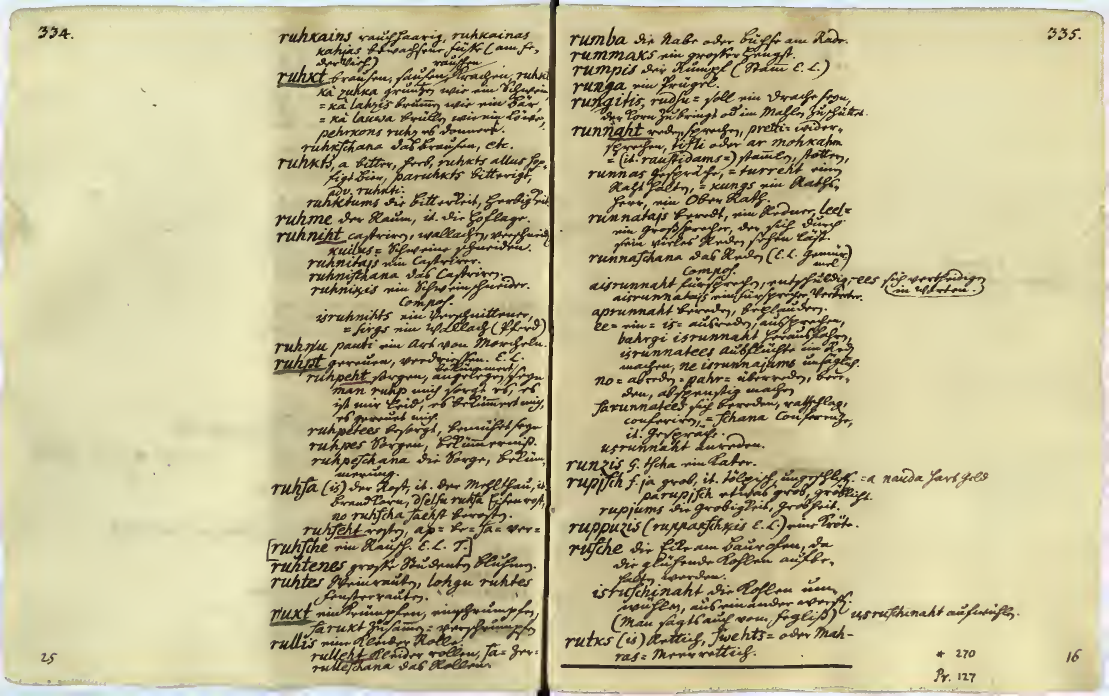 334.
ruhkains rauchhaarig, ruhkainas
kahjas bewachsene füsse (am fe-
dervieh) rauschen
ruhkt brausen, sausen, krachen, ruhkt
kâ zuhka grunzen wie ein Schwein
= kâ lahzis brumen wie ein Bär,
= kâ lauwa brüllen wie ein Löwe,
pehrkons ruhz es donnert.
ruhkschana das brausen, etc.
ruhkts, a bitter, herb, ruhkts allus
bier, paruhkts bitterigt,
adv. ruhkti.
ruhktums die bitterkeit, herbigkeit
ruhme der Raum, it. die Hoflage.
ruhniht castriren, wallachen, verschneid
kuilus = Schweine schneiden.
ruhnitajs ein Castrirer.
ruhnischana das Castriren.
ruhnizis ein Schweinschneider.
Compos.
isruhnihts ein Verschnittener,
= sirgs ein Wallach (Pferd)
ruhnu pauti ein Art von Morcheln.
ruhpt gereuen, verdriessen. E. L.
bekümmert
ruhpeht sorgen, angelegen seyn
man ruhp mich sorgt es, es
ist mir leid, es bekümmert mich,
es gereuet mich.
ruhpetees besorgt, bemühet seyn
ruhpes Sorgen, bekümerniss.
ruhpeschana die Sorge, bekü-
merung.
ruhsa (is) der Rost, it. der Mehlthau, it.
brandkorn, dselsu ruhsa Eisenrost,
no ruhscha saehst berostet.
ruhseht rosten, ap= be= sa= ver=
[ruhsche ein Rausch. E. L. T.]
ruhtenes grosse Studenten bluhmen.
ruhtes Weinrauten, lohgu ruhtes
fensterrauten.
rukt einkrümpfen, einschrumpfen,
sarukt zusamen = verschrumpfen
rullis eine Kleider Rolle.
rulleht Kleider rollen, sa= zer=
rulleschana das Rollen.
25
335.
rumba die Nabe oder büchse am Rade.
rummaks ein grosser Hengst.
rumpis der Rumpf (Stam E. L.)
runga ein Prügel.
rungitis, rudsu = soll ein Drache seyn,
der Korn zubringt od im Mahlen zuschüttet.
runnaht reden, sprechen, pretti = wider-
sprechen, tihti oder ar mohkahm
= (it. raustidams =) stamlen, stottern,
runnas Gespräche, = turreht einen
Raht halten, = kungs ein Rahts-
herr, ein Ober Rath.
runnatajs beredt, ein Redner, leel=
ein Grossprecher, der sich durch
sein vieles Reden sehen läst.
runnaschana das Reden (E. L. Gemur-
mel)
Compos.
aisrunnaht fürsprechen, entschuldig, = ees sich vertheidigen
in Worten.
aisrunnatajs ein fürsprecher Vertreter.
aprunnaht bereden, beplaudern.
ee = ein = is = ausreden, aussprechen,
bahrgi isrunnaht herausfahren,
isrunnatees Ausflüchte im Red
machen, ne isrunnajams unsäglich.
no = abreden = pahr = überreden, bere-
den, abspenstig machen
sarunnatees sich bereden, rathschlag,
conferiren, = schana Conferenz,
it. Gespräche.
usrunnaht anreden.
runzis G. tscha ein Kater.
rupisch f. ja grob, it. tölpisch, ungeschliff. = a nauda hart Geld
parupisch etwas grob, gröblicht.
rupjums die Grobigkeit, Grobheit.
ruppuzis (ruppakschkis E. L.) eine Kröte.
rusche die Ecke am bauerofen, da
die glühende Kohlen aufbe-
halten werden.
isruschinaht die Kohlen um
wühlen, auseinander werffen
(Man sagts auch vom Heyligss) usruschinaht aufwühlen
rutks (is) Rettich, swehts = oder Mah-
ras = Meerrettich.
* 270
Pr. 127
16